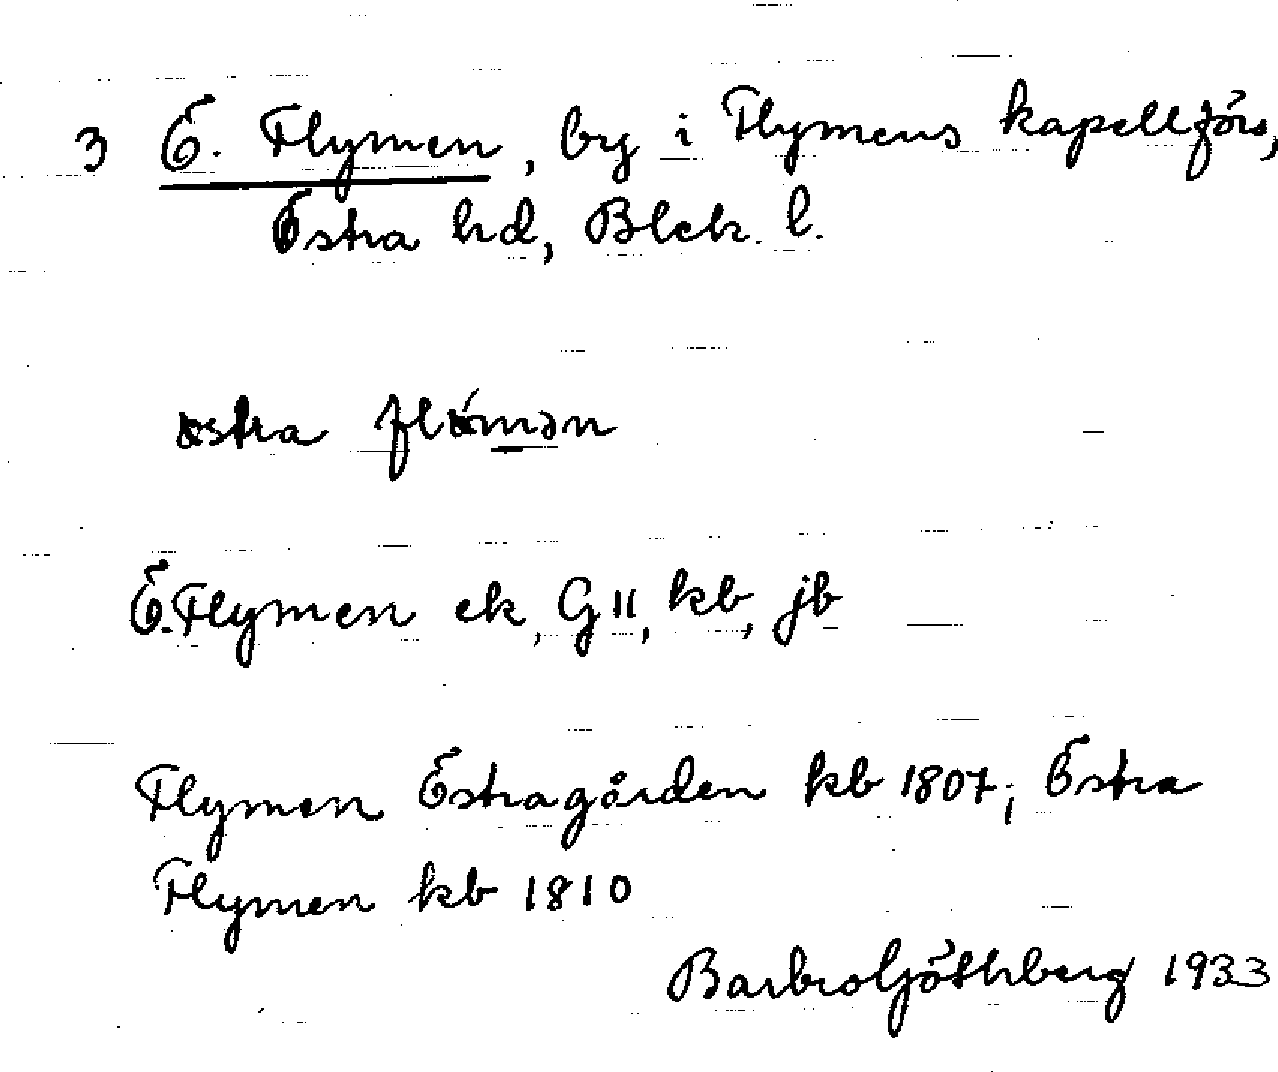 3 Ö. Flymen, by i Flymens kapellförs,
Östra hd, Blek. l.
östra flǿmən
Ö. Flymen ek, GII, kb, jb
Flymen Östragården kb 1807; Östra
Flymen kb 1810
Barbro Göthberg 1933